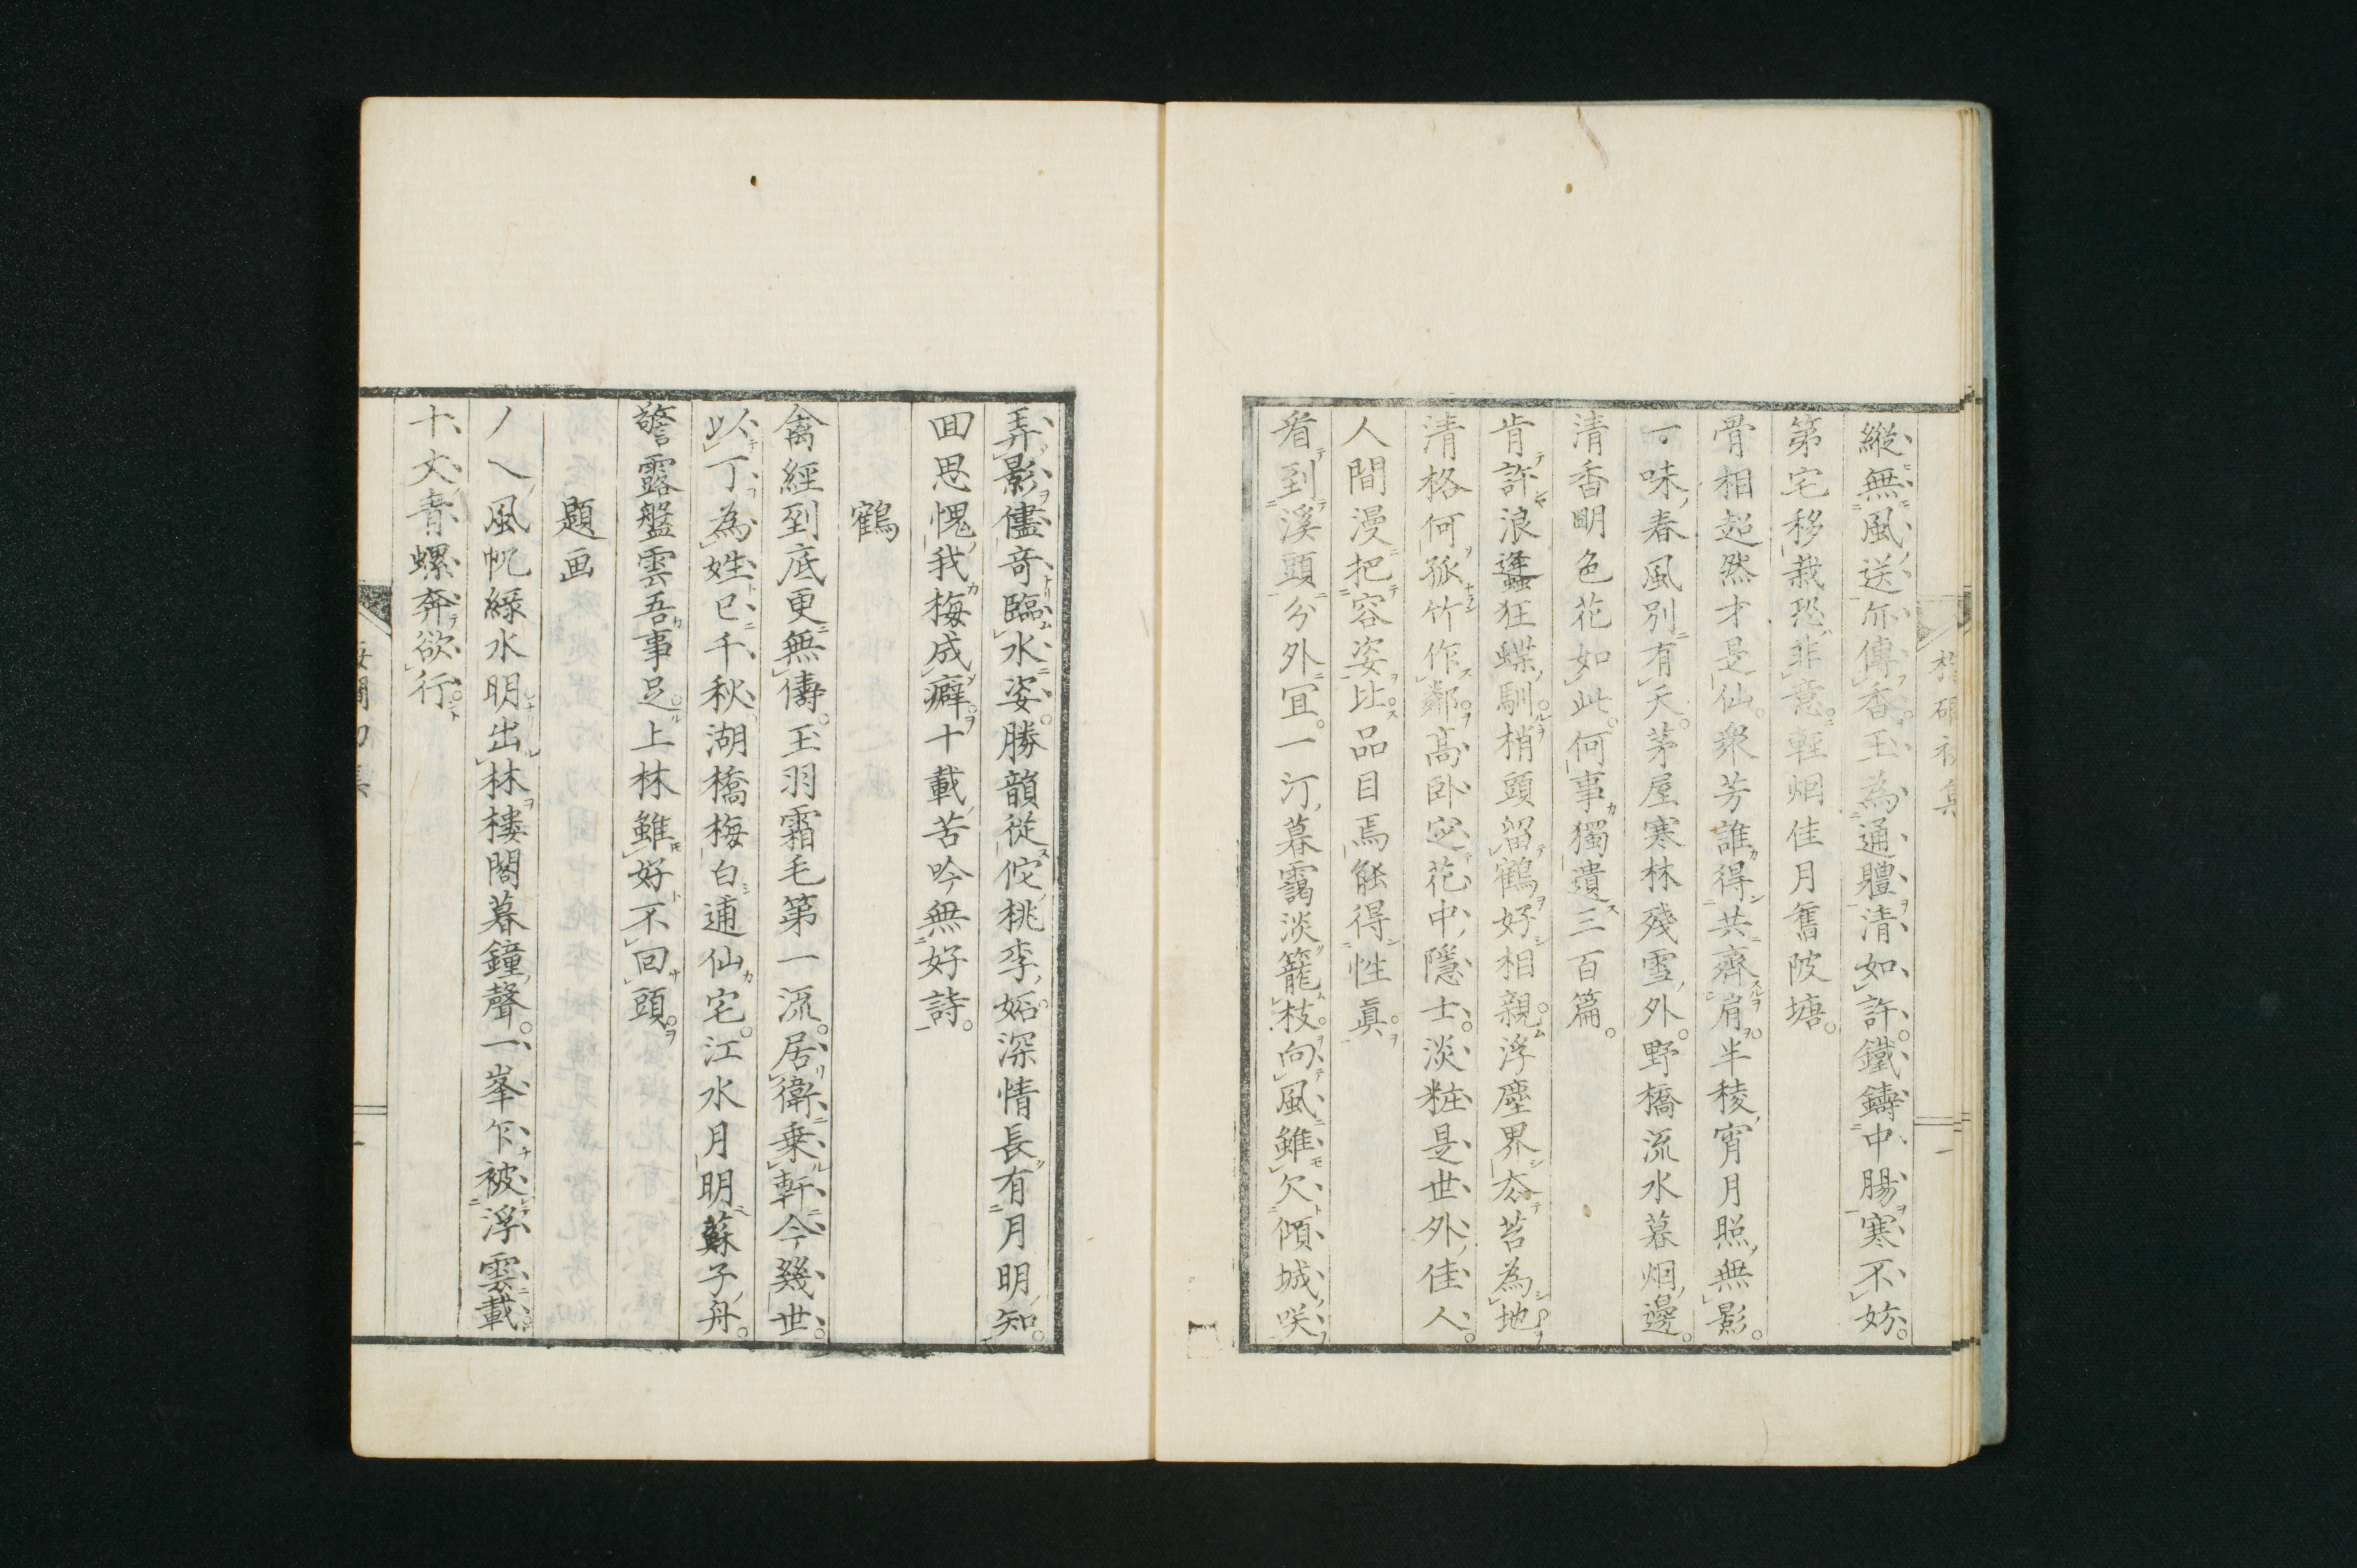 縱無風送尒傳香玉為通體清如許鐵鑄中腸寒不妨
第宅移栽恐非意輕烟佳月舊陂塘
骨相超然才是仙衆芳誰得共齊肩半稜宵月照無影
一味春風別有天茅屋寒林殘雪外野橋流水暮烟邊
清香明色花如此何事獨遺三百篇
肯許浪蜂狂蝶馴梢頭留鶴好相親浮塵界夳苔為地
清格何孤竹作鄰高臥窓花中隱士淡粧是世外佳人
人間漫把容姿比品目焉能得性眞
看到溪頭分外冝一汀暮靄淡籠枝向風雖欠傾城咲
弄影儘奇臨水姿勝韻從佗桃李妬深情長有月明知
回思愧我梅成癖十載苦吟無好詩
鶴
禽經到底更無儔玉羽霜毛第一流居衛乗軒今幾世
以丁為姓已千秋湖橋梅白逋仙宅江水月明蘇子舟
警露盤雲吾事足上林雖好不回頭
題画
ノ乀風帆緑水明出林樓閣暮鐘聲一峯乍被浮雲載
十丈青螺奔欲行